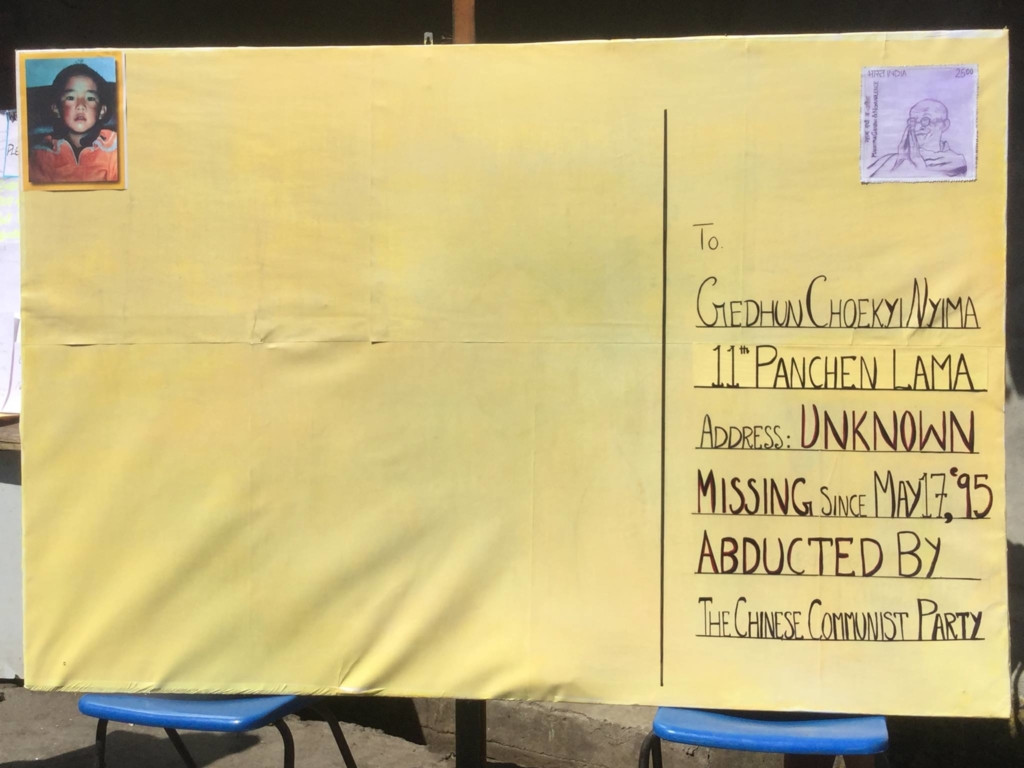 भारत INDIA 25.00
To.
GEDHUN CHOEKYI NYIMA
11th PANCHEN LAMA
ADDRESS: UNKNOWN
MISSING SINCE MAY 17, '95
ABDUCTED BY
THE CHINESE COMMUNIST PARTY